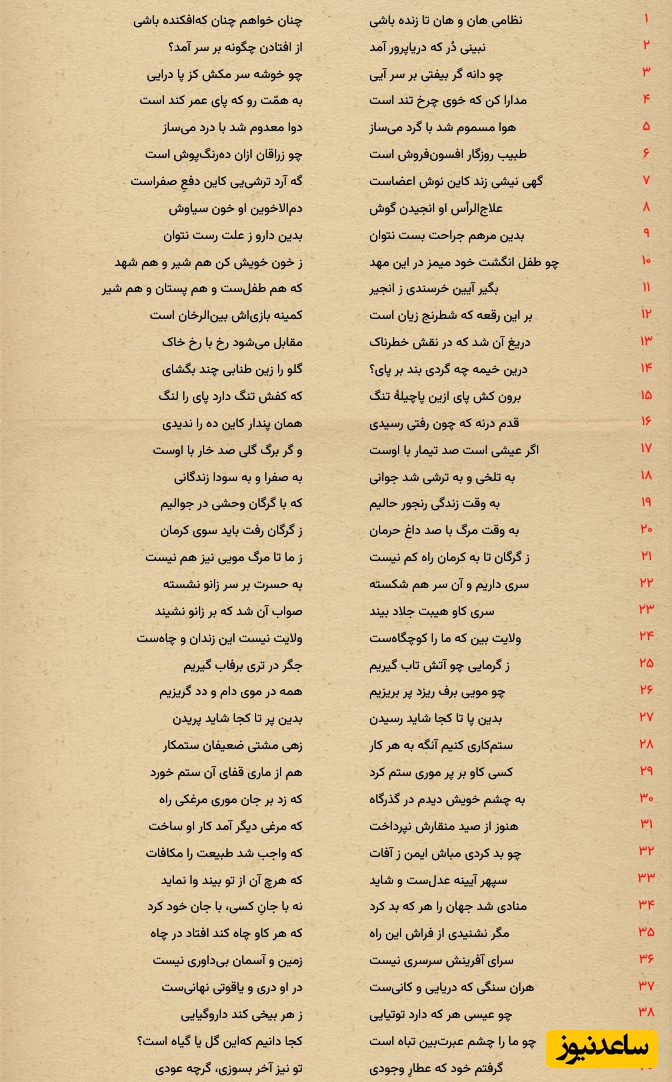 ۱ نظامی هان و هان تا زنده باشی چنان خواهم چنان که‌افکنده باشی
۲ نبینی دُر که دریاپرور آمد از افتادن چگونه بر سر آمد؟
۳ چو دانه گر بیفتی بر سر آیی چو خوشه سر مکش کز پا درایی
۴ مدارا کن که خوی چرخ تند است به همّت رو که پای عمر کند است
۵ هوا مسموم شد با گرد می‌ساز دوا معدوم شد با درد می‌ساز
۶ طبیب روزگار افسون‌فروش است چو زراقان ازان ده‌رنگ‌پوش است
۷ گهی نیشی زند کاین نوش اعضاست گه آرد ترشی‌یی کاین دفعِ صفراست
۸ علاج‌الرأس او انجیدن گوش دم‌الاخوین او خون سیاوش
۹ بدین مرهم جراحت بست نتوان بدین دارو ز علت رست نتوان
۱۰ چو طفل انگشت خود میمز در این مهد ز خون خویش کن هم شیر و هم شهد
۱۱ بگیر آیین خرسندی ز انجیر که هم طفل‌ست و هم پستان و هم شیر
۱۲ بر این رقعه که شطرنج زیان است کمینه بازی‌اش بین‌الرخان است
۱۳ دریغ آن شد که در نقش خطرناک مقابل می‌شود رخ با رخ خاک
۱۴ درین خیمه چه گردی بند بر پای؟ گلو را زین طنابی چند بگشای
۱۵ برون کش پای ازین پاچیلهٔ تنگ که کفش تنگ دارد پای را لنگ
۱۶ قدم درنه که چون رفتی رسیدی همان پندار کاین ده را ندیدی
۱۷ اگر عیشی است صد تیمار با اوست و گر برگ گلی صد خار با اوست
۱۸ به تلخی و به ترشی شد جوانی به صفرا و به سودا زندگانی
۱۹ به وقت زندگی رنجور حالیم که با گرگان وحشی در جوالیم
۲۰ به وقت مرگ با صد داغ حرمان ز گرگان رفت باید سوی کرمان
۲۱ ز گرگان تا به کرمان راه کم نیست ز ما تا مرگ مویی نیز هم نیست
۲۲ سری داریم و آن سر هم شکسته به حسرت بر سر زانو نشسته
۲۳ سری کاو هیبت جلاد بیند صواب آن شد که بر زانو نشیند
۲۴ ولایت بین که ما را کوچگاه‌ست ولایت نیست این زندان و چاه‌ست
۲۵ ز گرمایی چو آتش تاب گیریم جگر در تری برفاب گیریم
۲۶ چو مویی برف ریزد پر بریزیم همه در موی دام و دد گریزیم
۲۷ بدین پا تا کجا شاید رسیدن بدین پر تا کجا شاید پریدن
۲۸ ستم‌کاری کنیم آنگه به هر کار زهی مشتی ضعیفان ستمکار
۲۹ کسی کاو بر پر موری ستم کرد هم از ماری قفای آن ستم خورد
۳۰ به چشم خویش دیدم در گذرگاه که زد بر جان موری مرغکی راه
۳۱ هنوز از صید منقارش نپرداخت که مرغی دیگر آمد کار او ساخت
۳۲ چو بد کردی مباش ایمن ز آفات که واجب شد طبیعت را مکافات
۳۳ سپهر آیینه عدل‌ست و شاید که هرچ آن از تو بیند وا نماید
۳۴ منادی شد جهان را هر که بد کرد نه با جانِ کسی، با جان خود کرد
۳۵ مگر نشنیدی از فراش این راه که هر کاو چاه کند افتاد در چاه
۳۶ سرای آفرینش سرسری نیست زمین و آسمان بی‌داوری نیست
۳۷ هران سنگی که دریایی و کانی‌ست در او دری و یاقوتی نهانی‌ست
۳۸ چو عیسی هر که دارد توتیایی ز هر بیخی کند داروگیایی
چو ما را چشم عبرت‌بین تباه است کجا دانیم که‌این گل یا گیاه است؟
گرفتم خود که عطارِ وجودی تو نیز آخر بسوزی، گرچه عودی
ساعدنیوز